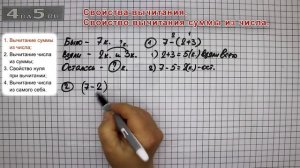 4as5.ru
Свойства вычитания.
Свойство вычитания суммы из числа.
1. Вычитание суммы
из числа;
2. Вычитание числа
из суммы;
3. Свойство нуля
при вычитании;
4. Вычитание числа
из самого себя.
Было – 7к. ① 7-(2+3)
Взяли – 2к. и 3к. 1) 2+3=5(к) взяли всего
Осталось – ? к. 2) 7-5=2(к)-ост.
② (7-2)